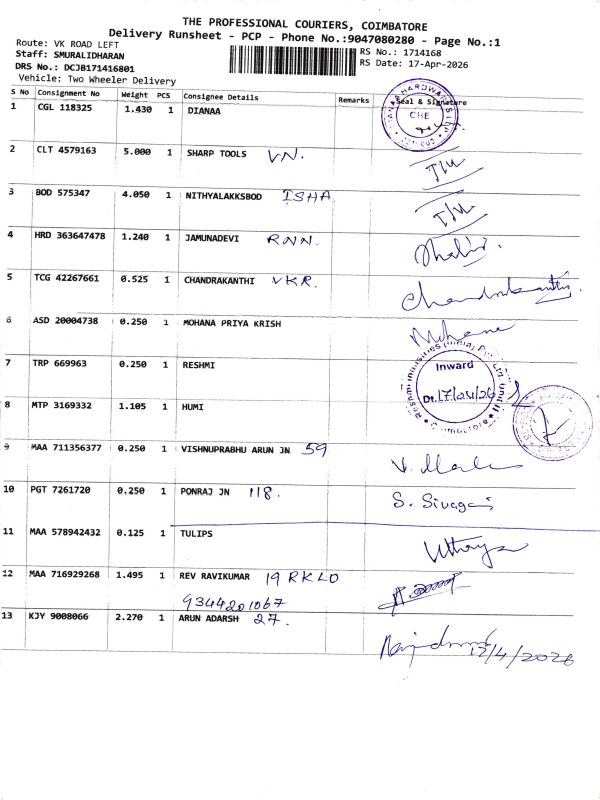 THE PROFESSIONAL COURIERS, COIMBATORE
Delivery Runsheet - PCP - Phone No.:9047080280 - Page No.:1
Route: VK ROAD LEFT
Staff: SMURALIDHARAN
DRS No.: DCJB171416801
Vehicle: Two Wheeler Delivery
RS No.: 1714168
RS Date: 17-Apr-2026
S No Consignment No Weight PCS Consignee Details Remarks Seal & Signature
1 CGL 118325 1.430 1 DIANAA
CBE
2 CLT 4579163 5.000 1 SHARP TOOLS VN.
3 BOD 575347 4.050 1 NITHYALAKKSBOD ISHA.
4 HRD 363647478 1.240 1 JAMUNADEVI RNN.
5 TCG 42267661 0.525 1 CHANDRAKANTHI VKR.
Chandrakanthi
6 ASD 20004738 0.250 1 MOHANA PRIYA KRISH
Mohana
7 TRP 669963 0.250 1 RESHMI
Inward
Dt.17/04/26
8 MTP 3169332 1.105 1 HUMI
9 MAA 711356377 0.250 1 VISHNUPRABHU ARUN JN 59
10 PGT 7261720 0.250 1 PONRAJ JN 118.
S. Sivagami
11 MAA 578942432 0.125 1 TULIPS
12 MAA 716929268 1.495 1 REV RAVIKUMAR 19 RKLO
9344201067
13 KJY 9008066 2.270 1 ARUN ADARSH 27.
17/4/2026